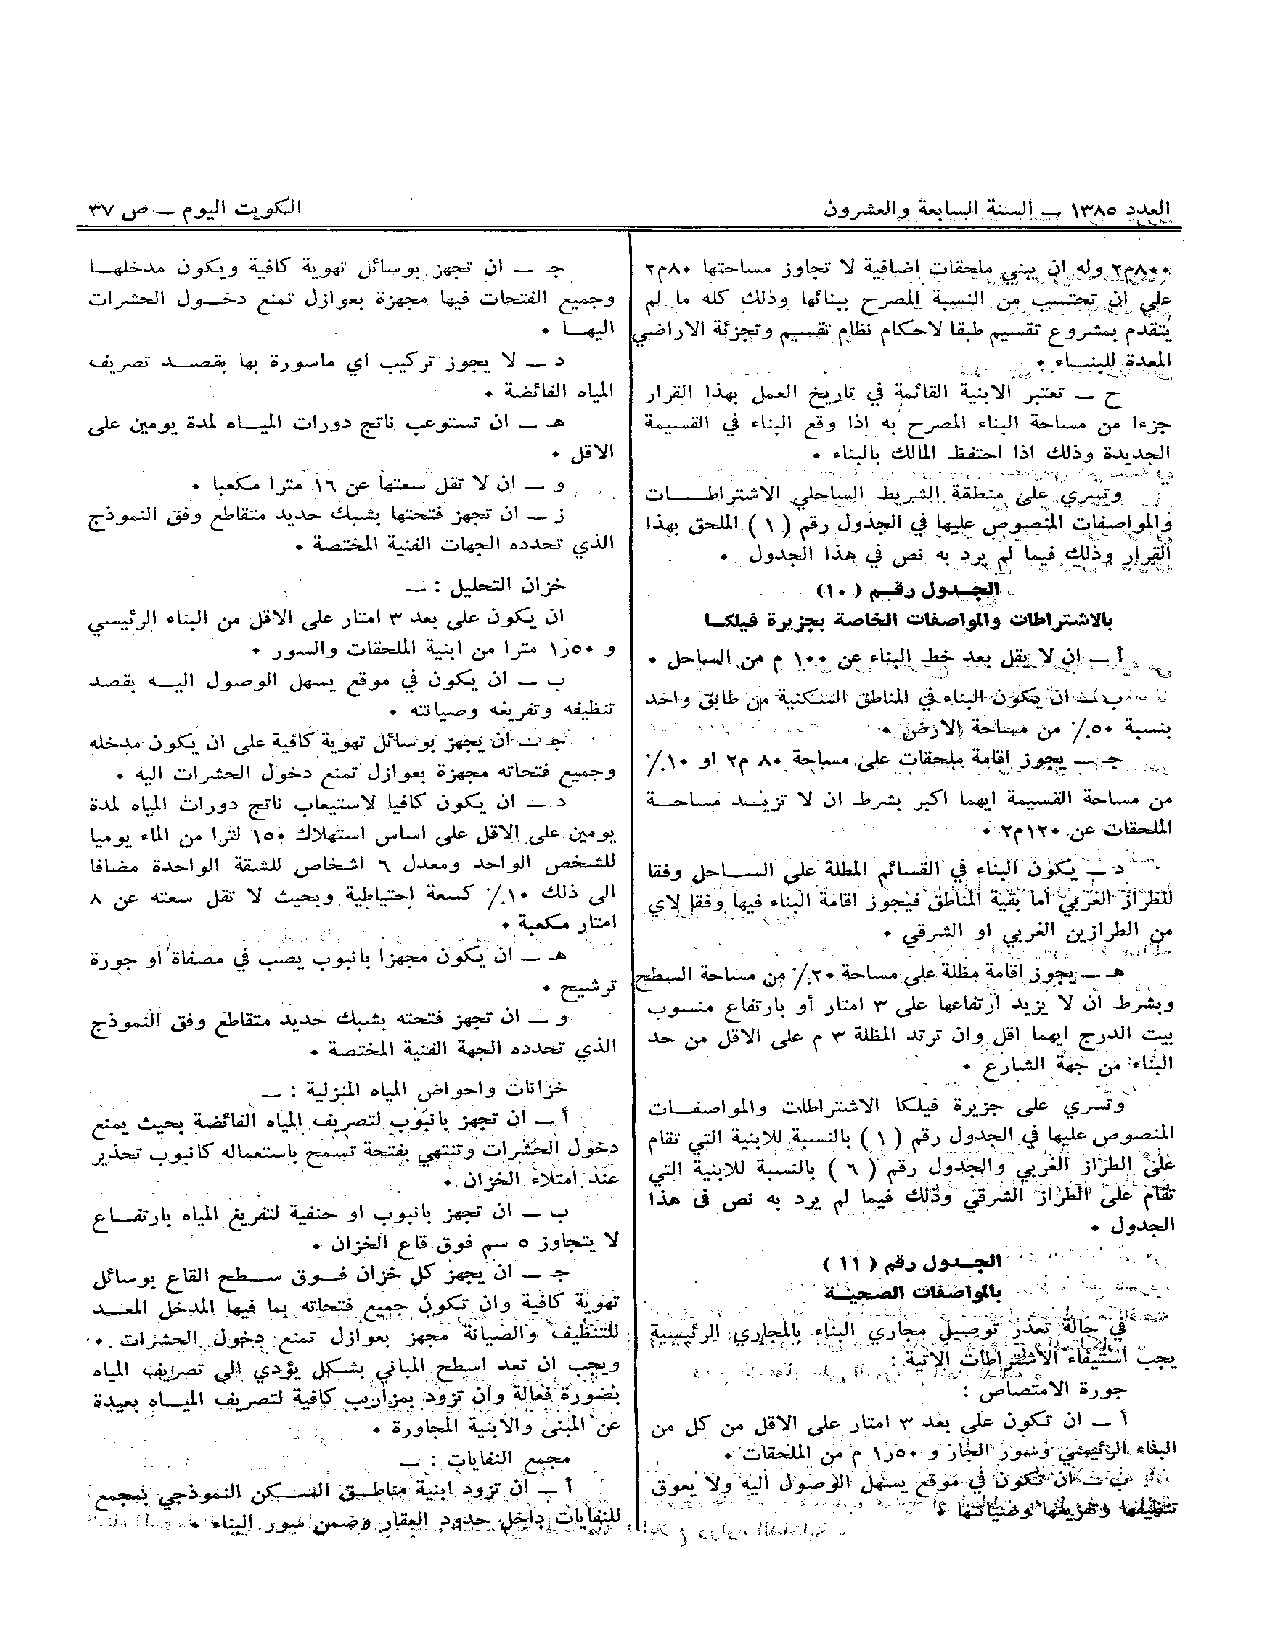 العدد ١٣٨٥ — السنة السابعة والعشرون
الكويت اليوم — ص ٣٧
٨٠٠م٢ وله ان يبني ملحقات اضافية لا تجاوز مساحتها ٨٠م٢
على ان تحتسب من النسبة المصرح ببنائها وذلك كله ما لم
يتقدم بمشروع تقسيم طبقا لاحكام نظام تقسيم وتجزئة الاراضي
المعدة للبنـــاء •
ح — تعتبر الابنية القائمة في تاريخ العمل بهذا القرار
جزءا من مساحة البناء المصرح به اذا وقع البناء في القسيمة
الجديدة وذلك اذا احتفظ المالك بالبناء •
وتسري على منطقة الشريط الساحلي الاشتراطـــات
والمواصفات المنصوص عليها في الجدول رقم ( ١ ) الملحق بهذا
القرار وذلك فيما لم يرد به نص في هذا الجدول •
الجـدول رقـم ( ١٠ )
بالاشتراطات والمواصفات الخاصة بجزيرة فيلكـا
أ — ان لا يقل بعد خط البناء عن ١٠٠ م من الساحل •
ب — ان يكون البناء في المناطق السكنية من طابق واحد
بنسبة ٥٠٪ من مساحة الارض •
جـ — يجوز اقامة ملحقات على مساحة ٨٠ م٢ او ١٠٪
من مساحة القسيمة ايهما اكبر بشرط ان لا تزيــد مساحــة
الملحقات عن ١٢٠م٢ •
د — يكون البناء في القسائم المطلة على الســاحل وفقا
للطراز العربي أما بقية المناطق فيجوز اقامة البناء فيها وفقا لاي
من الطرازين الغربي او الشرقي •
هـ — يجوز اقامة مظلة على مساحة ٢٠٪ من مساحة السطح
وبشرط ان لا يزيد ارتفاعها على ٣ امتار أو بارتفاع منسوب
بيت الدرج ايهما اقل وان ترتد المظلة ٣ م على الاقل من حد
البناء من جهة الشارع •
وتسري على جزيرة فيلكا الاشتراطات والمواصفــات
المنصوص عليها في الجدول رقم ( ١ ) بالنسبة للابنية التي تقام
على الطراز الغربي والجدول رقم ( ٦ ) بالنسبة للابنية التي
تقام على الطراز الشرقي وذلك فيما لم يرد به نص في هذا
الجدول •
الجـدول رقم ( ١١ )
بالمواصفات الصحيــة
في حالة تعذر توصيل مجاري البناء بالمجاري الرئيسية
يجب استيفاء الاشتراطات الاتية :
جورة الامتصاص :
أ — ان تكون على بعد ٣ امتار على الاقل من كل من
البناء الرئيسي وسور الجار و ١٫٥٠ م من الملحقات •
ب — ان تكون في موقع يسهل الوصول اليه ولا يعوق
تنظيفها وتفريغها وصيانتها •
جـ — ان تجهز بوسائل تهوية كافية ويكون مدخلهــا
وجميع الفتحات فيها مجهزة بعوازل تمنع دخــول الحشرات
اليهــا •
د — لا يجوز تركيب اي ماسورة بها بقصــد تصريف
المياه الفائضة •
هـ — ان تستوعب ناتج دورات الميــاه لمدة يومين على
الاقل •
و — ان لا تقل سعتها عن ١٦ مترا مكعبا •
ز — ان تجهز فتحتها بشبك حديد متقاطع وفق النموذج
الذي تحدده الجهات الفنية المختصة •
خزان التحليل : —
ان يكون على بعد ٣ امتار على الاقل من البناء الرئيسي
و ١٫٥٠ مترا من ابنية الملحقات والسور •
ب — ان يكون في موقع يسهل الوصول اليــه بقصد
تنظيفه وتفريغه وصيانته •
جـ — ان يجهز بوسائل تهوية كافية على ان يكون مدخله
وجميع فتحاته مجهزة بعوازل تمنع دخول الحشرات اليه •
د — ان يكون كافيا لاستيعاب ناتج دورات المياه لمدة
يومين على الاقل على اساس استهلاك ١٥٠ لترا من الماء يوميا
للشخص الواحد ومعدل ٦ اشخاص للشقة الواحدة مضافا
الى ذلك ١٠٪ كسعة احتياطية وبحيث لا تقل سعته عن ٨
امتار مكعبة •
هـ — ان يكون مجهزا بانبوب يصب في مصفاة او جورة
ترشيح •
و — ان تجهز فتحته بشبك حديد متقاطع وفق النموذج
الذي تحدده الجهة الفنية المختصة •
خزانات واحواض المياه المنزلية : —
أ — ان تجهز بانبوب لتصريف المياه الفائضة بحيث يمنع
دخول الحشرات وتنتهي بفتحة تسمح باستعماله كانبوب تحذير
عند امتلاء الخزان •
ب — ان تجهز بانبوب او حنفية لتفريغ المياه بارتفــاع
لا يتجاوز ٥ سم فوق قاع الخزان •
جـ — ان يجهز كل خزان فــوق ســطح القاع بوسائل
تهوية كافية وان تكون جميع فتحاته بما فيها المدخل المعــد
للتنظيف والصيانة مجهز بعوازل تمنع دخول الحشرات •
ويجب ان تعد اسطح المباني بشــكل يؤدي الى تصريف المياه
بصورة فعالة وان تزود بمزاريب كافية لتصريف الميــاه بعيدة
عن المبنى والابنية المجاورة •
مجمع النفايات : —
أ — ان تزود ابنية مناطــق الســكن النموذجي بمجمع
للنفايات داخل حدود العقار وضمن سور البناء •